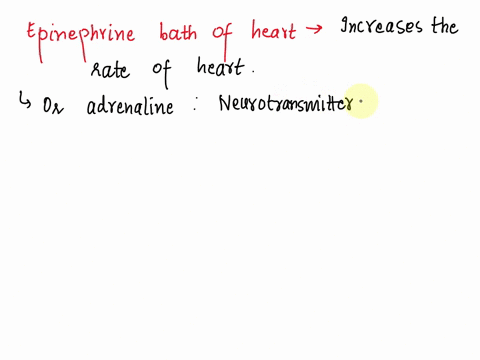 Epinephrine bath of heart → Increases the
rate of heart.
↳ Or adrenaline : Neurotransmitter.